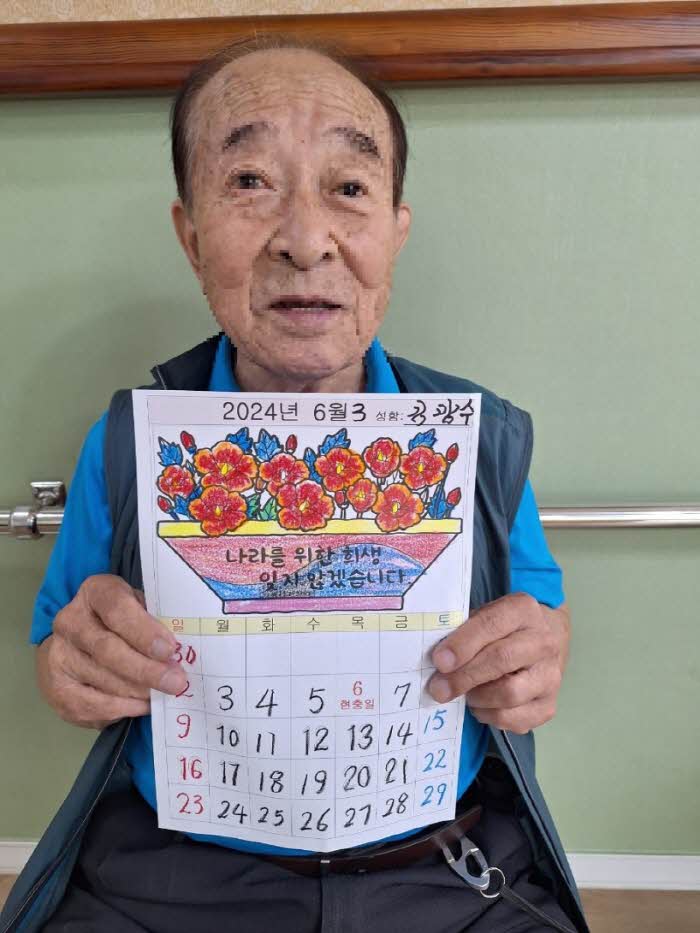 2024년 6월3 성함: 공광수
나라를 위한 희생
잊지 않겠습니다.
일 월 화 수 목 금 토
30
2 3 4 5 6 7
현충일
9 10 11 12 13 14 15
16 17 18 19 20 21 22
23 24 25 26 27 28 29